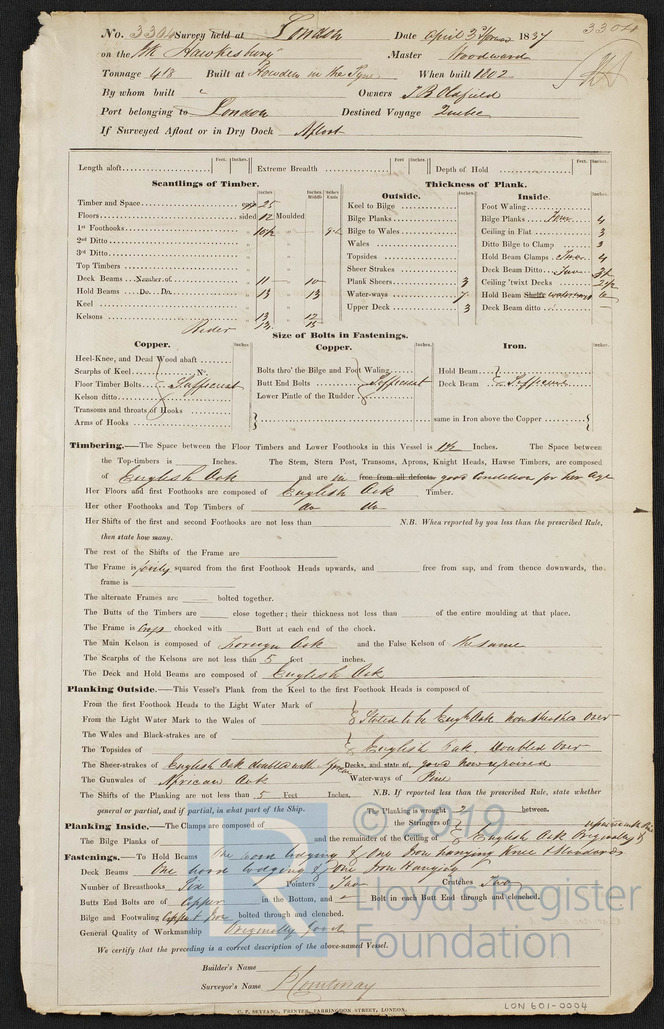 No. 3304 Survey held at London Date April 3 1837 3304
on the Hawkesbury Master Woodward
Tonnage 418 Built at Howden in the Tyne When built 1802
By whom built " Owners J B Oldfield
Port belonging to London Destined Voyage Quebec
If Surveyed Afloat or in Dry Dock Afloat
Length aloft Feet. Inches. Extreme Breadth Feet Inches. Depth of Hold Feet. Inches.
Scantlings of Timber. Thickness of Plank.
Inches Inches Middle Inches Ends Outside. Inches. Inside. Inches.
Timber and Space 25 Keel to Bilge Foot Waling
Floors sided 12 Moulded Bilge Planks Bilge Planks 4
1st Foothooks Bilge to Wales Ceiling in Flat 3
2nd Ditto Wales Ditto Bilge to Clamp 3
3rd Ditto Topsides Hold Beam Clamps 4
Top Timbers Sheer Strakes Deck Beam Ditto
Deck Beams Number of 11 10 Plank Sheers 3 Ceiling 'twixt Decks 2½
Hold Beams Do. Do. 13 13 Water-ways 7 Hold Beam Shelfs waterways 6
Keel Upper Deck 3 Deck Beam ditto
Kelsons 13 12
Rider 15
Size of Bolts in Fastenings.
Copper. Copper. Iron.
Heel-Knee, and Dead Wood abaft Inches.
Scarphs of Keel No. Bolts thro' the Bilge and Foot Waling Hold Beam
Floor Timber Bolts Sufficient Butt End Bolts Sufficient Deck Beam Sufficient
Kelson ditto Lower Pintle of the Rudder
Transoms and throats of Hooks
Arms of Hooks same in Iron above the Copper
Timbering.—The Space between the Floor Timbers and Lower Foothooks in this Vessel is Inches. The Space between
the Top-timbers is Inches. The Stem, Stern Post, Transoms, Aprons, Knight Heads, Hawse Timbers, are composed
of English Oak and are in free from all defects, good condition for her age
Her Floors and first Foothooks are composed of English Oak Timber.
Her other Foothooks and Top Timbers of do do
Her Shifts of the first and second Foothooks are not less than N.B. When reported by you less than the prescribed Rule,
then state how many.
The rest of the Shifts of the Frame are
The Frame is squared from the first Foothook Heads upwards, and free from sap, and from thence downwards, the
frame is
The alternate Frames are bolted together.
The Butts of the Timbers are close together; their thickness not less than of the entire moulding at that place.
The Frame is chocked with Butt at each end of the chock.
The Main Kelson is composed of Foreign Oak and the False Kelson of the same
The Scarphs of the Kelsons are not less than 5 feet inches.
The Deck and Hold Beams are composed of English Oak
Planking Outside.—This Vessel's Plank from the Keel to the first Foothook Heads is composed of
From the first Foothook Heads to the Light Water Mark of
From the Light Water Mark to the Wales of Stated to be Engh Oak now sheathed over
The Wales and Black-strakes are of
The Topsides of English Oak. Doubled over
The Sheer-strakes of English Oak doubled with Decks, and state of, good now repaired
The Gunwales of African Oak Water-ways of Pine
The Shifts of the Planking are not less than 5 Feet Inches. N.B. If reported less than the prescribed Rule, state whether
general or partial, and if partial, in what part of the Ship. The Planking is wrought 2 between.
Planking Inside.—The Clamps are composed of the Stringers of
The Bilge Planks of and the remainder of the Ceiling of English Oak Originally
Fastenings.—To Hold Beams One wood lodging & One Iron hanging Knee & Standards
Deck Beams One wood lodging & one Iron Hanging
Number of Breasthooks Six Pointers Two Crutches Two
Butts End Bolts are of Copper in the Bottom, and Bolt in each Butt End through and clenched.
Bilge and Footwaling Copper & Iron bolted through and clenched.
General Quality of Workmanship Originally Good
We certify that the preceding is a correct description of the above-named Vessel.
Builder's Name
Surveyor's Name P Courtenay
C. F. SEYFANG, PRINTER, FARRINGDON STREET, LONDON.
LON 601-0004
© 2019
Lloyd's Register
Foundation
LR